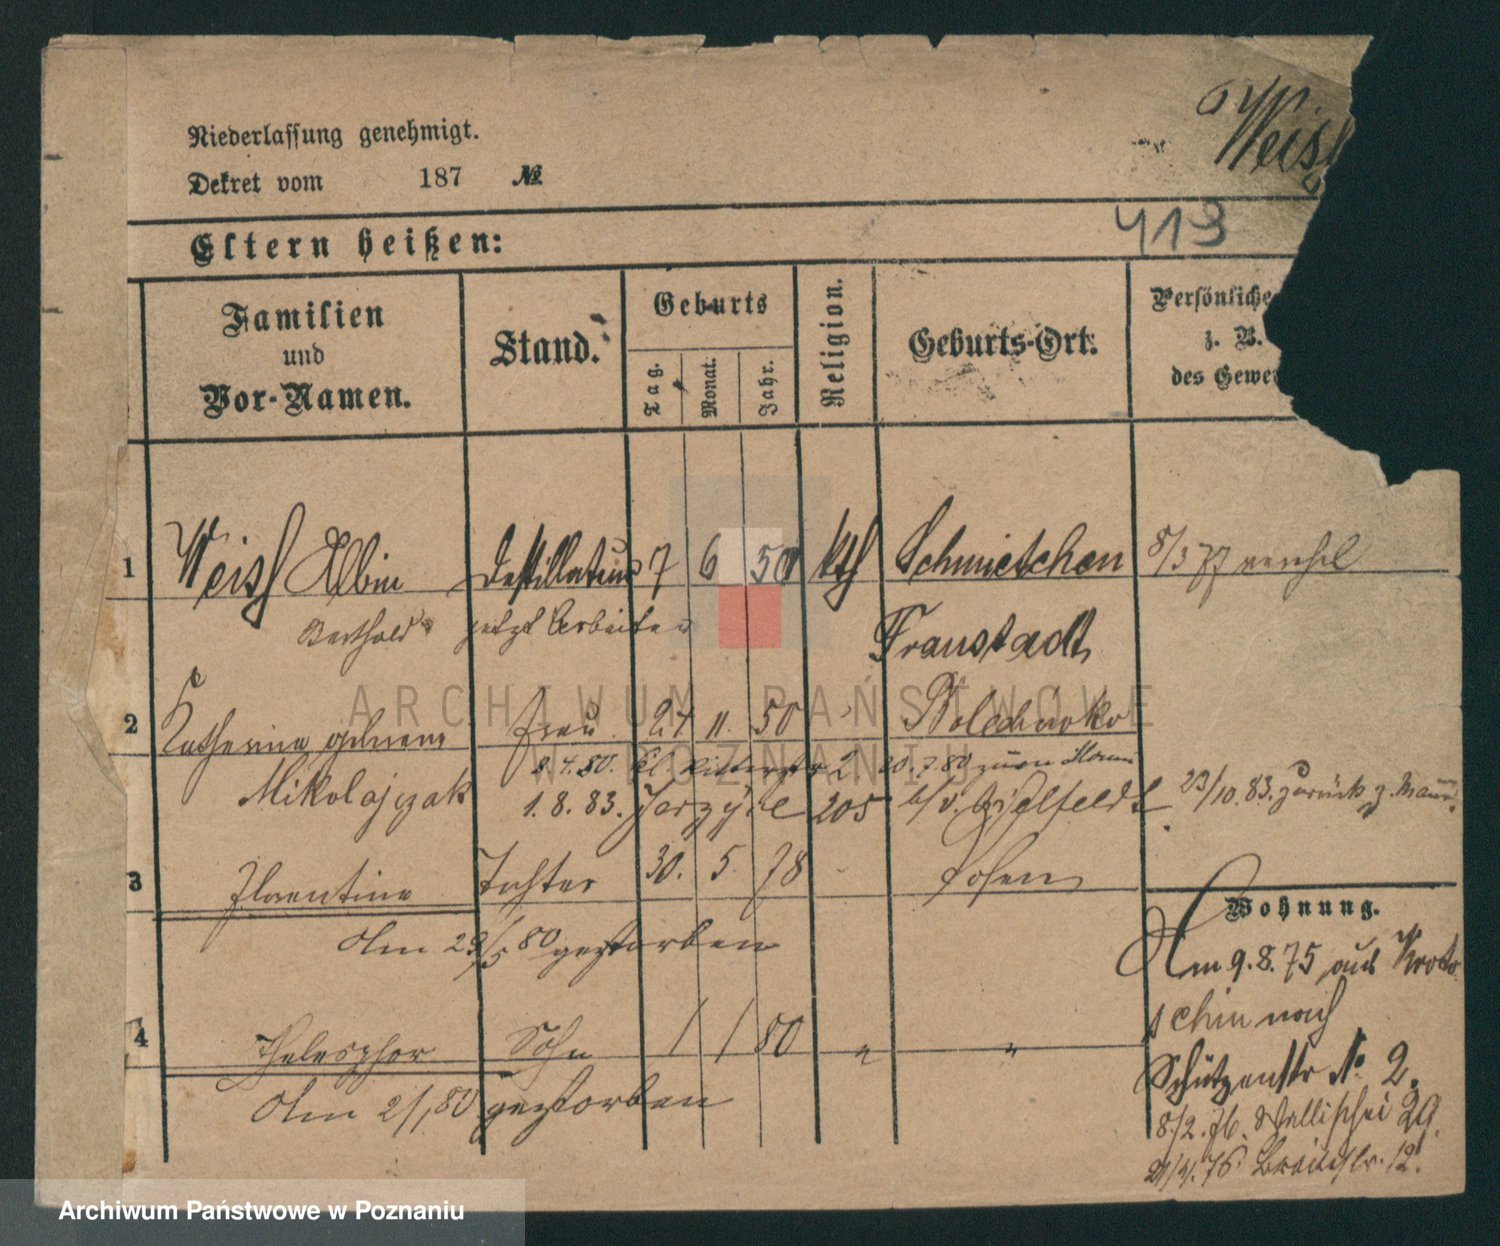 Weiß
Niederlassung genehmigt.
Dekret vom 187 №
413
Eltern heißen:
Familien und Vor-Namen.
Stand.
Geburts
Tag. Monat. Jahr.
Religion.
Geburts-Ort.
Persönliche
z. B.
des Gewe
1 Weiss Albin Destillateur 7 6 50 kth Schmietschen 8/3 77
Berthold jetzt Arbeiter Fraustadt
2 Katharina geborene Frau 24 11. 50 Bolechowko
8.4.80. Kl. Ritterstr 2 20.7.80 zum Mann
Mikolajczak 1.8.83. Jerzyce 205 b/v. 23/10.83. zurück z. Mann.
3 Florentine Tochter 30. 5. 78 - Posen
Am 29/5 80 gestorben
4 Thelesphor Sohn / / 80 " "
Am 2/1, 80 gestorben
Wohnung.
Am 9.8.75 aus Kroto
schin nach
Schützenstr No 2.
8/2.76. Wallischei 29.
21/4.76 Breitestr. 12.
ARCHIWUM PAŃSTWOWE
W POZNANIU
Archiwum Państwowe w Poznaniu